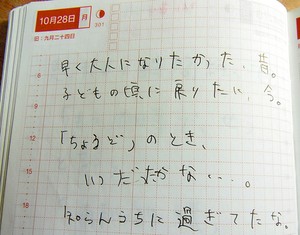 10月28日 月
301
旧:九月二十四日
早く大人になりたかった、昔。
子どもの頃に戻りたい、今。
「ちょうど」のとき、
いつだったかな…。
知らんうちに過ぎてたな。